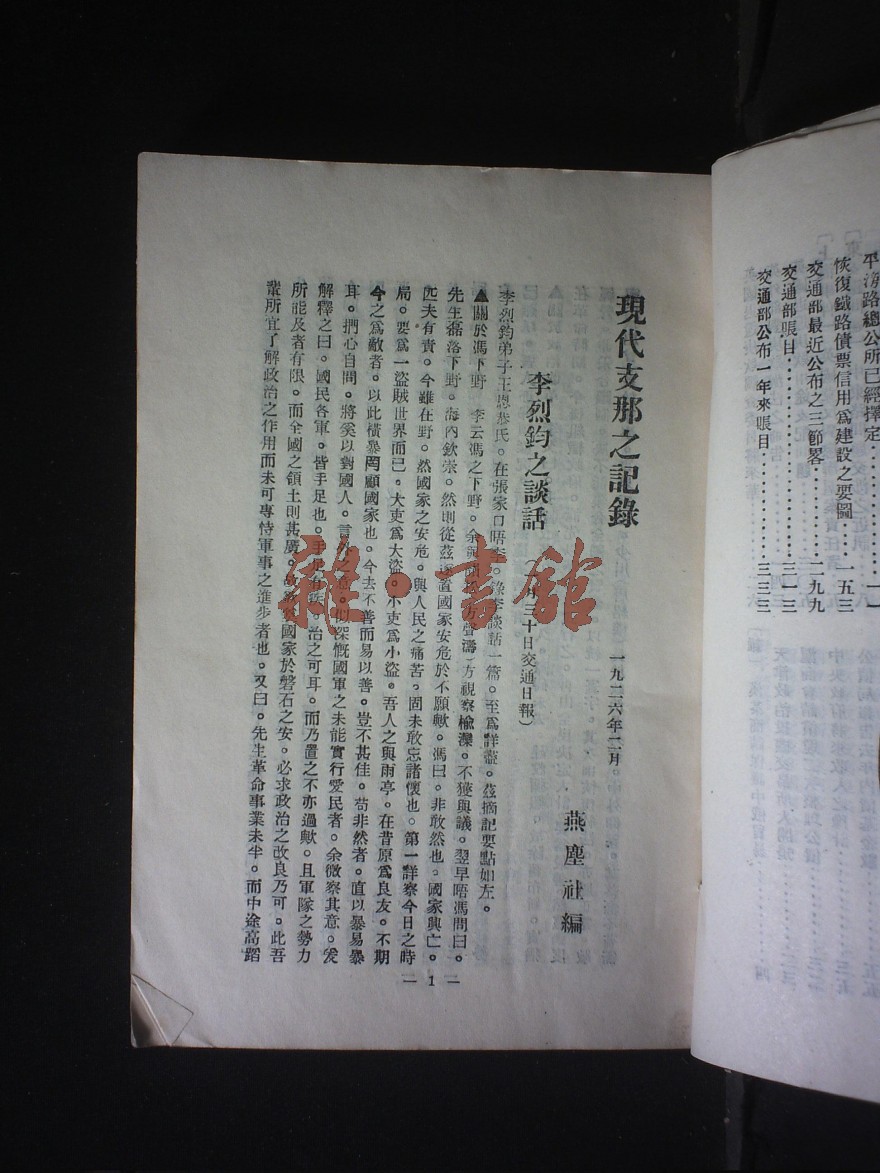 平漢路總公所已經擇定⋯⋯⋯一一
恢復鐵路債票信用爲建設之要圖⋯⋯⋯一五三
交通部最近公布之三節畧⋯⋯⋯二九九
交通部賬目⋯⋯⋯三一三
交通部公布一年來賬目⋯⋯⋯三三三
現代支那之記錄
一九二六年二月
燕塵社編
李烈鈞之談話
三十日交通日報）
李烈鈞弟子王恩恭氏。在張家口晤李。錄李談話一篇。至爲詳盡。茲摘記要點如左。
▲關於馮下野 李云馮之下野。余與方聲濤）方視察楡灤。不獲與議。翌早晤馮問曰。
先生磊落下野。海內欽崇。然則從茲遂置國家安危於不願歟。馮曰。非敢然也。國家興亡。
匹夫有責。今雖在野。然國家之安危。與人民之痛苦。固未敢忘諸懷也。第一詳察今日之時
局。要爲一盜賊世界而已。大吏爲大盜。小吏爲小盜。吾人之與雨亭。在昔原爲良友。不期
今之爲敵者。以此橫暴罔顧國家也。今去不善而易以善。豈不甚佳。苟非然者。直以暴易暴
耳。捫心自問。將奚以對國人。言外之意。似深慨國軍之未能實行愛民者。余微察其意。爰
解釋之曰。國民各軍。皆手足也。手足有疾。治之可耳。而乃置之不亦過歟。且軍隊之勢力
所能及者有限。而全國之領土則甚廣。欲致國家於磐石之安。必求政治之改良乃可。此吾
輩所宜了解政治之作用而未可專恃軍事之進步者也。又曰。先生革命事業未半。而中途高蹈
— 1 —
雜·書館